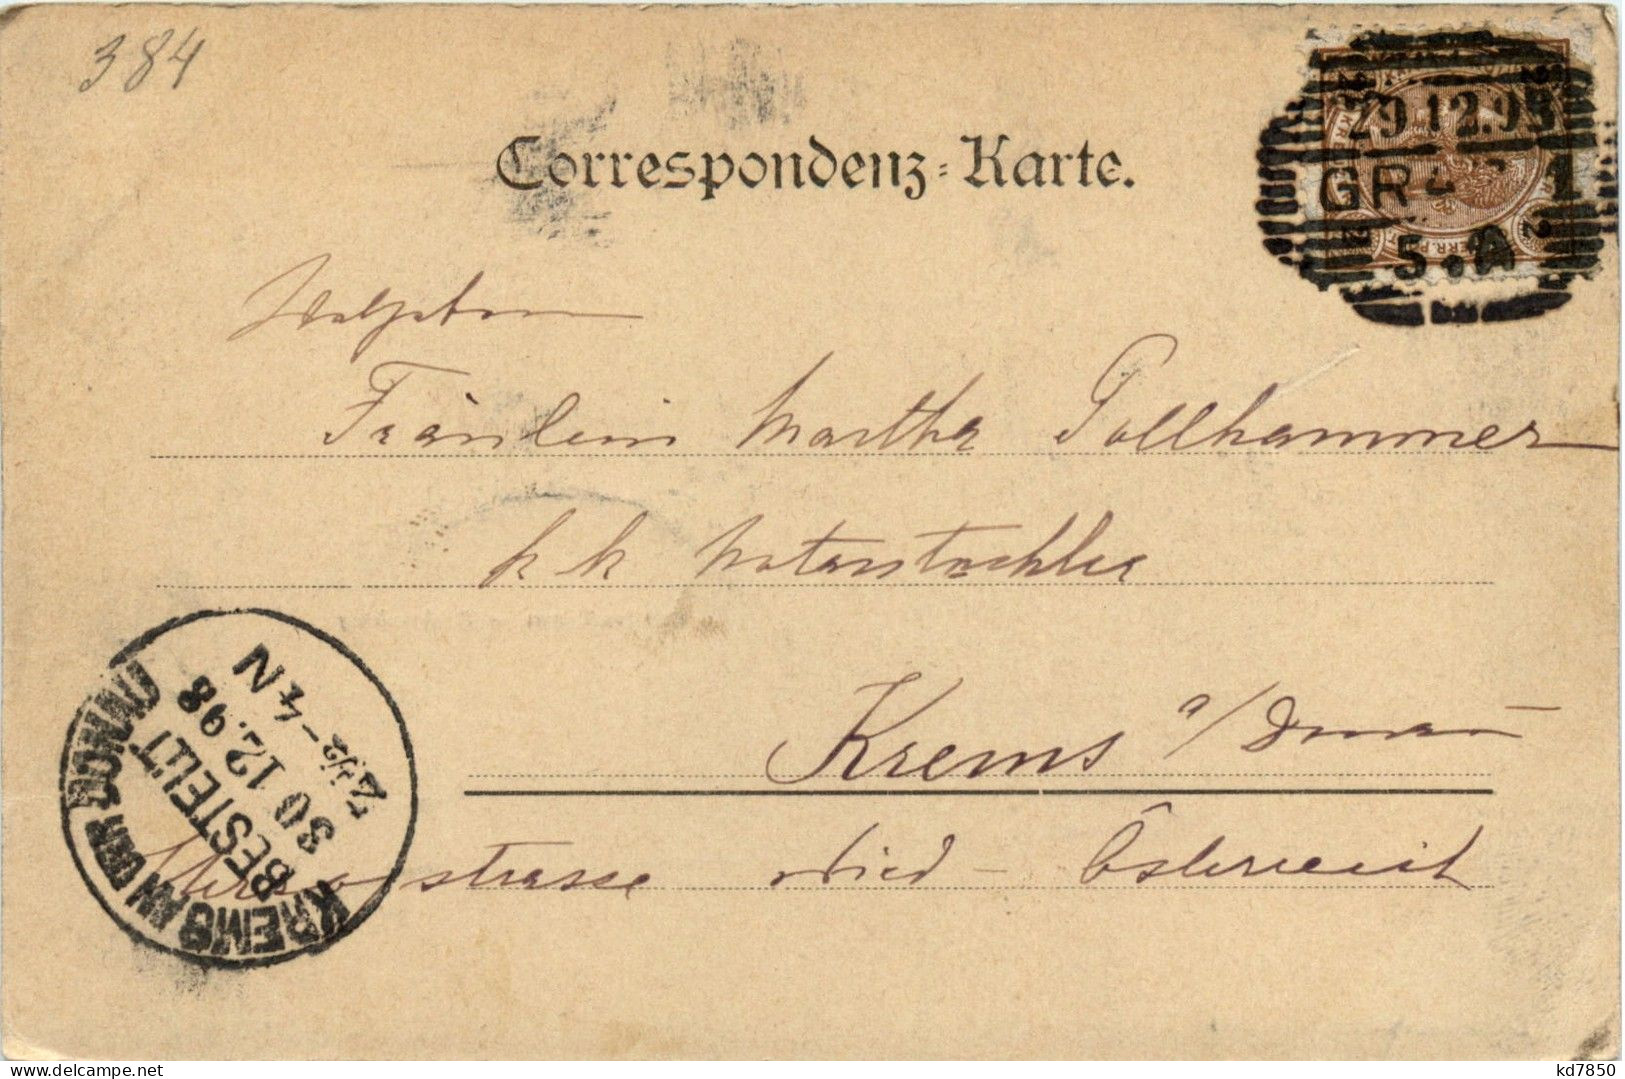 384
Correspondenz-Karte.
29.12.98
GRAZ 1
5.A
Wohlgeboren
Fräulein Martha Pollhammer
k k Notarstochter
Krems a/Donau
strasse Nied - Österreich
KREMS AN DER DONAU
BESTELLT
30 12.98
2½-4 N
kd7850